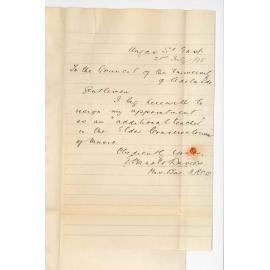 Angas St East
To the Council of the University
of Adelaide
Gentlemen
I beg herewith to
resign my appointment
as an "additional teacher"
in the Elder Conservatorium
of Music
Obediently yours
Davies
Mus. Bac.